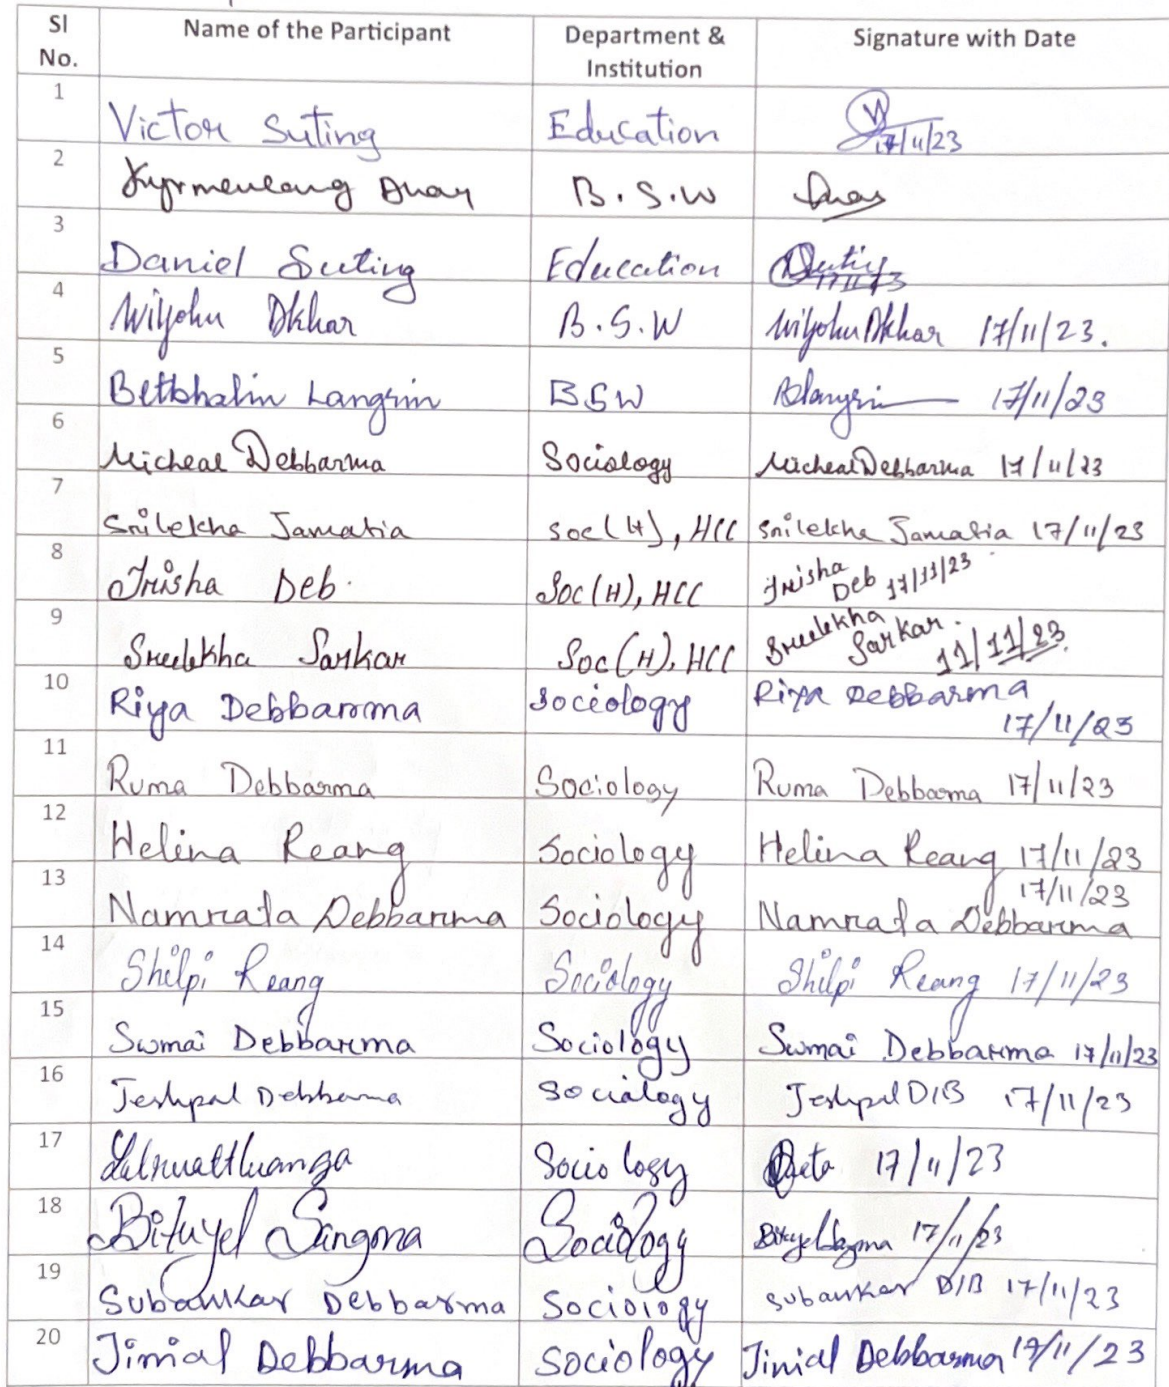 Sl No. Name of the Participant Department & Institution Signature with Date
1 Victor Suting Education 17/11/23
2 B.S.W
3 Daniel Suting Education Suting 17/11/23
4 Wilyohu Dkhar B.S.W Wilyohu Dkhar 17/11/23.
5 Betbhalin Langrin BSW Blangrin 17/11/23
6 Micheal Debbarma Sociology Micheal Debbarma 17/11/23
7 Srilekha Jamatia Soc(H), HCC Srilekha Jamatia 17/11/23
8 Trisha Deb. Soc(H), HCC Trisha Deb 17/11/23
9 Sreelekha Sarkar Soc(H), HCC Sreelekha Sarkar. 11/11/23
10 Riya Debbarma Sociology Riya Debbarma 17/11/23
11 Ruma Debbarma Sociology Ruma Debbarma 17/11/23
12 Helina Reang Sociology Helina Reang 17/11/23
13 Namrata Debbarma Sociology Namrata Debbarma 17/11/23
14 Shilpi Reang Sociology Shilpi Reang 17/11/23
15 Sumai Debbarma Sociology Sumai Debbarma 17/11/23
16 Jeshpal Debbarma Sociology Jeshpal D/B 17/11/23
17 Sociology 17/11/23
18 Bituyel Sangma Sociology Bituyel Sangma 17/11/23
19 Subankar Debbarma Sociology Subankar D/B 17/11/23
20 Jinial Debbarma Sociology Jinial Debbarma 17/11/23